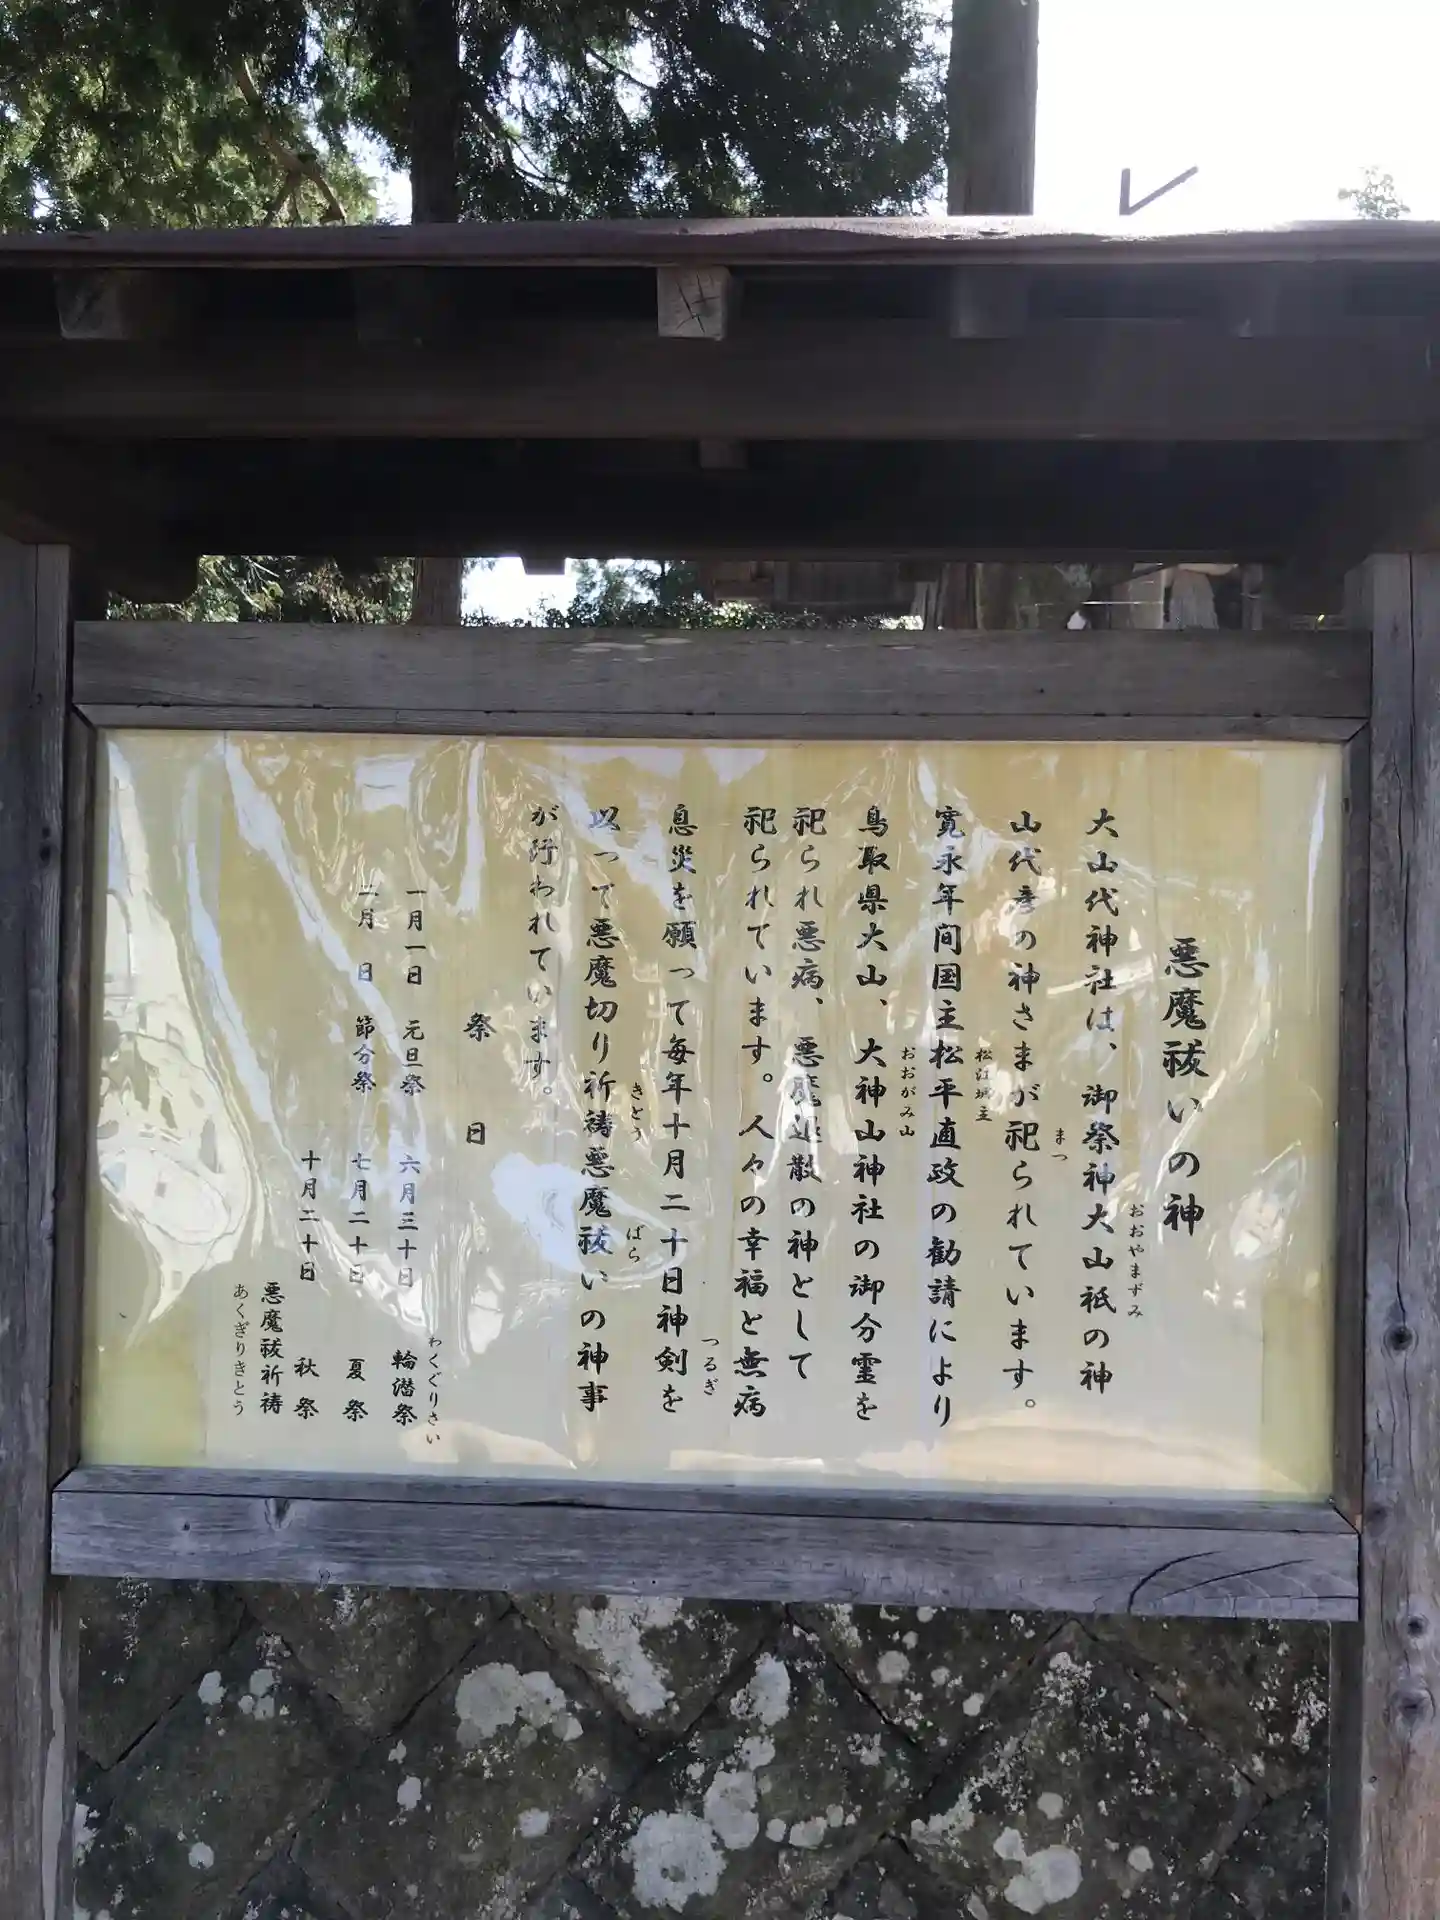 悪魔祓いの神
大山代神社は、御祭神大山祇の神
おおやまずみ
山代彦の神さまが祀られています。
まつ
寛永年間国主松平直政の勧請により
松江城主
鳥取県大山、大神山神社の御分霊を
おおがみ山
祀られ悪病、悪魔退散の神として
祀られています。人々の幸福と無病
息災を願って毎年十月二十日神剣を
つるぎ
以って悪魔切り祈祷悪魔祓いの神事
きとう
ばら
が行われています。
祭日
一月一日 元旦祭
二月 日 節分祭
六月三十日 輪潜祭
わくぐりさい
七月二十日 夏祭
十月二十日 秋祭
悪魔祓祈祷
あくぎりきとう